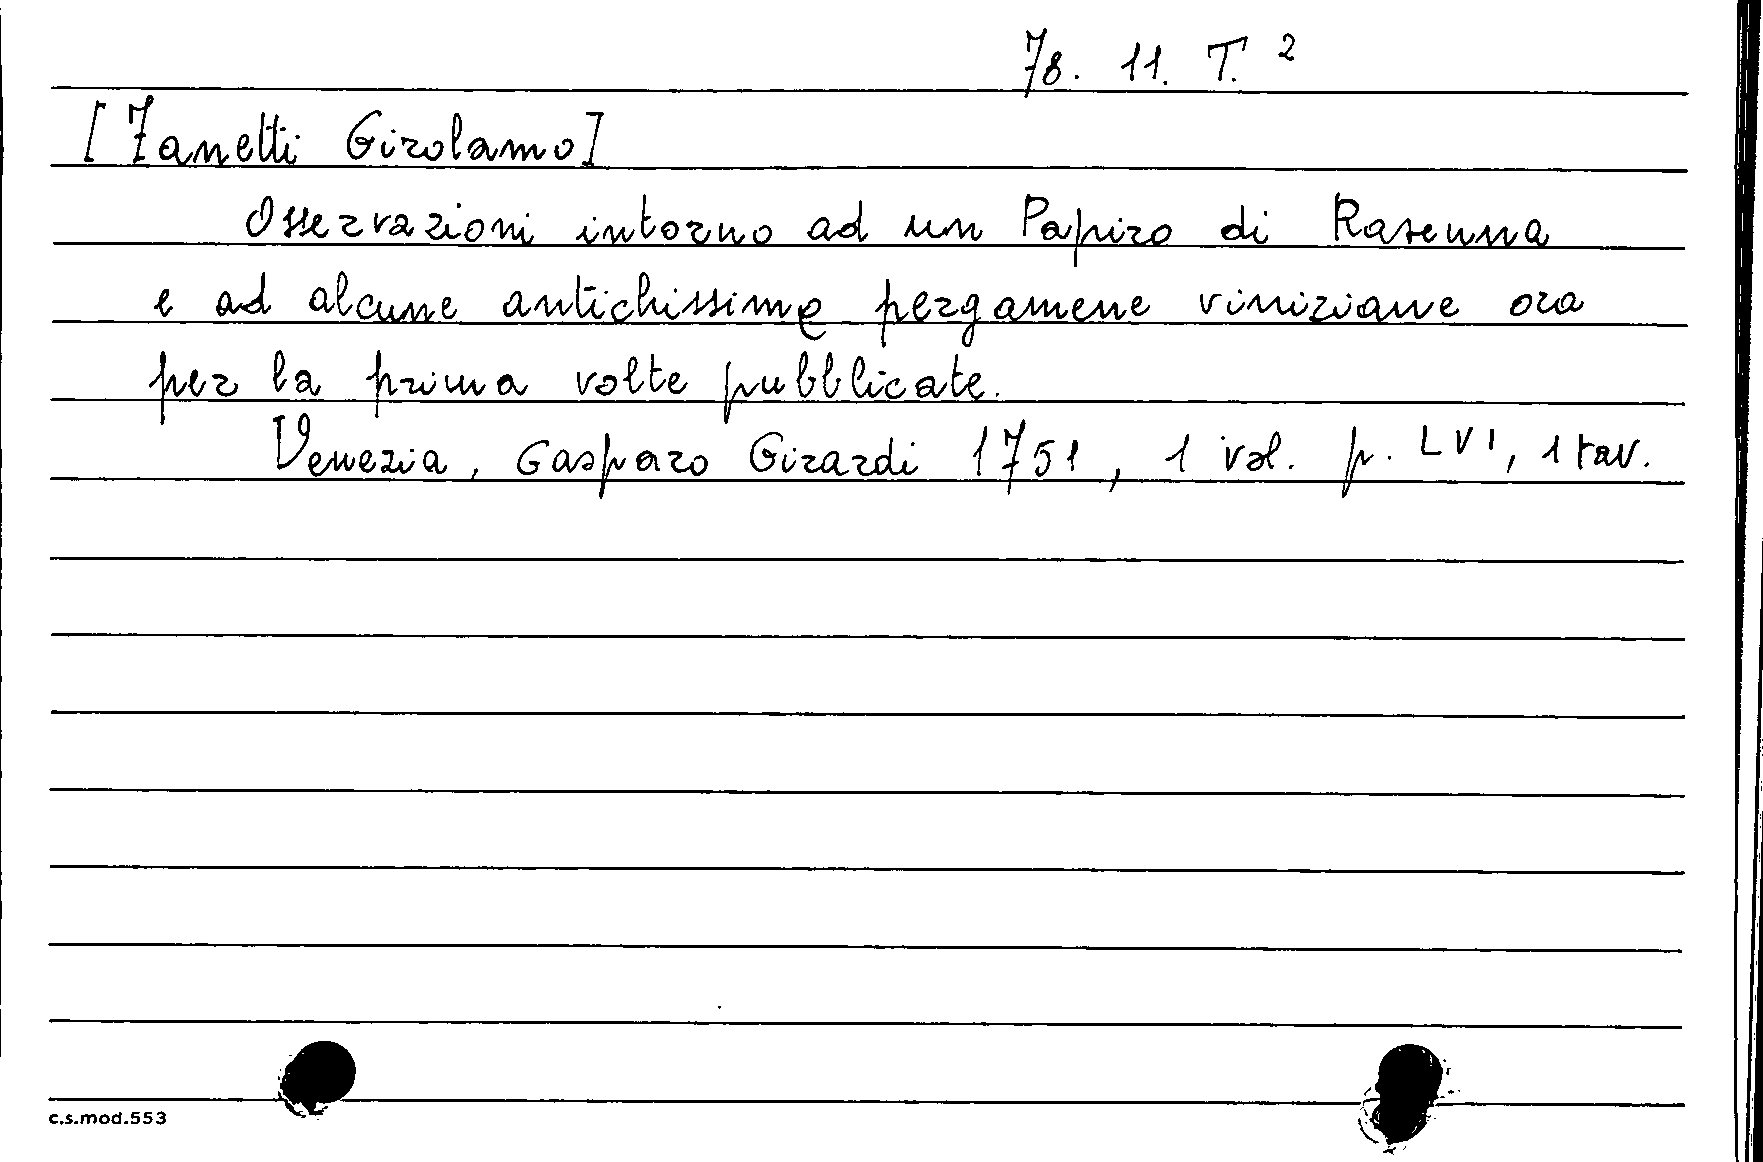 78. 11. T. 2
[Zanetti Girolamo]
Osservazioni intorno ad un Papiro di Ravenna
e ad alcune antichissime pergamene viniziane ora
per la prima volte pubblicate.
Venezia, Gasparo Girardi 1751, 1 vol. p. LVI, 1 tav.
c.s.mod.553